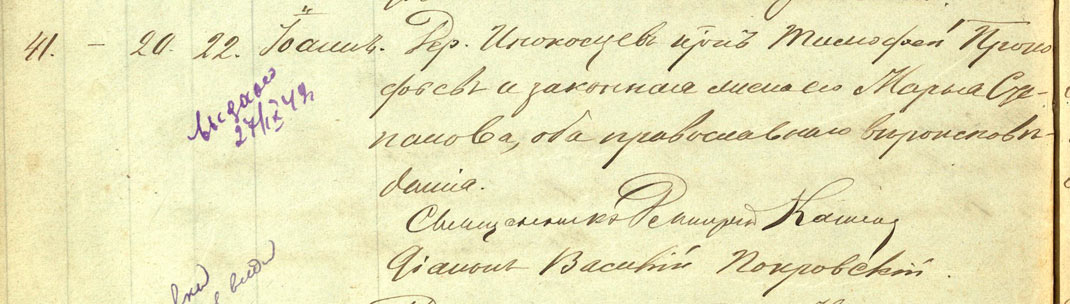 41. – 20. 22. Іоаннъ. Дер. Инокосцевъ крест. Тимофей Проко
фьевъ и законная жена его Марья Сте-
панова, оба православнаго вѣроисповѣ-
данія.
выдано
27/IX 49г
Священникъ Димитрій
Діаконъ Василій Покровскій.